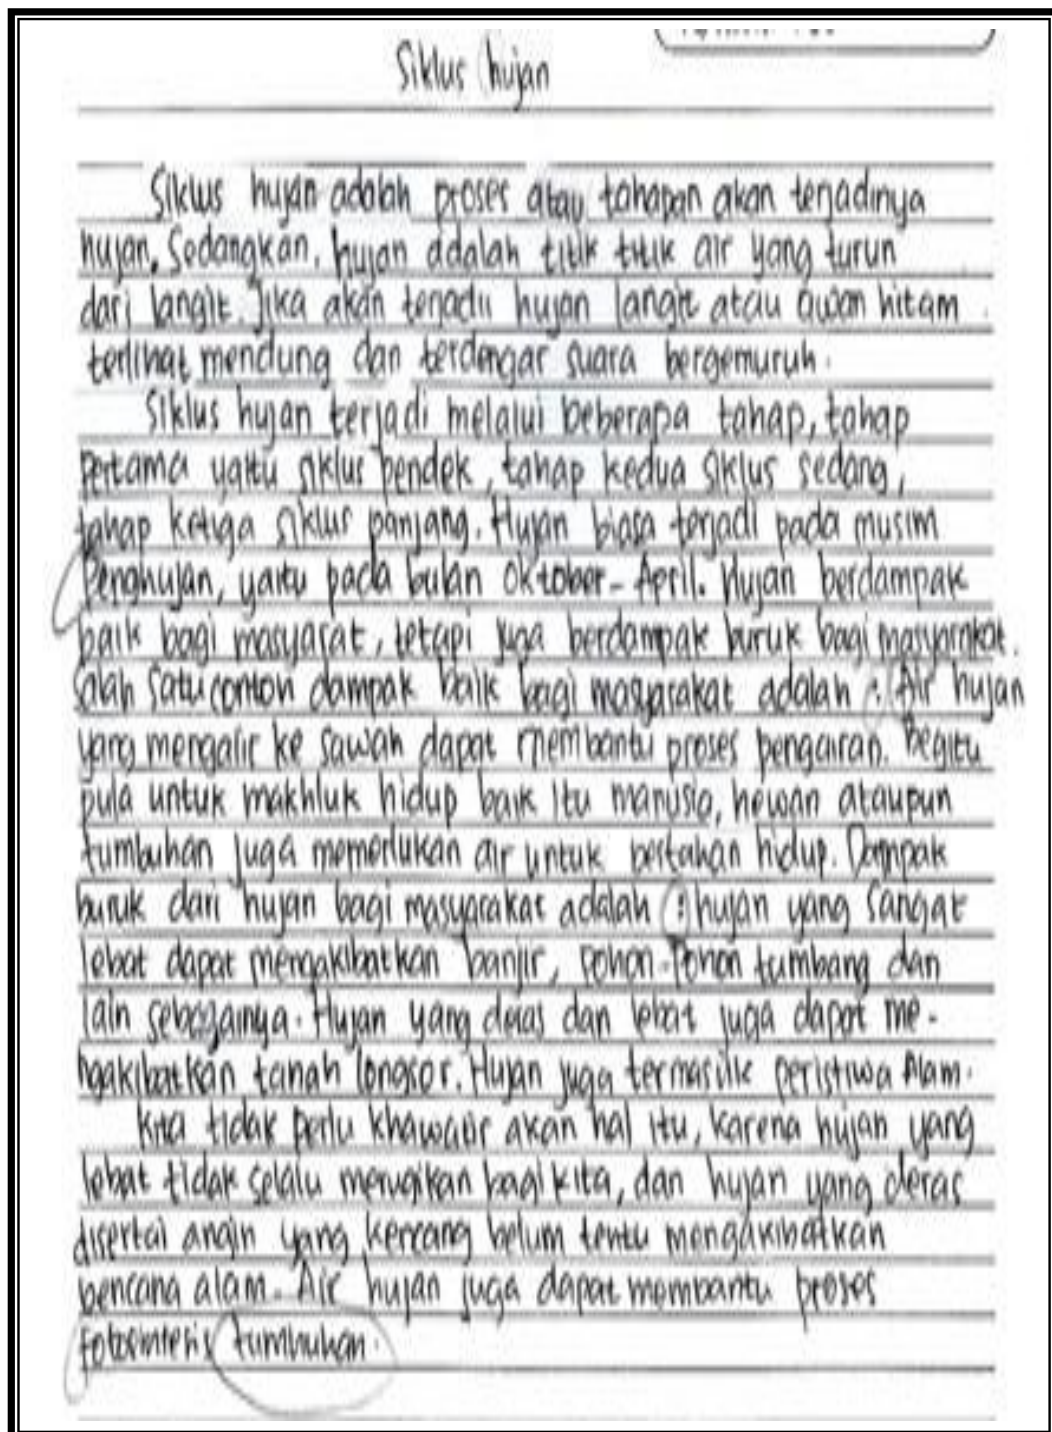 Siklus hujan
Siklus hujan adalah proses atau tahapan akan terjadinya
hujan. Sedangkan, hujan adalah titik titik air yang turun
dari langit. Jika akan terjadi hujan langit atau awan hitam
terlihat mendung dan terdengar suara bergemuruh.
Siklus hujan terjadi melalui beberapa tahap, tahap
pertama yaitu siklus pendek, tahap kedua siklus sedang,
tahap ketiga siklus panjang. Hujan biasa terjadi pada musim
penghujan, yaitu pada bulan Oktober - April. Hujan berdampak
baik bagi masyarat, tetapi juga berdampak buruk bagi masyarakat.
Salah satu contoh dampak baik bagi masyarakat adalah : Air hujan
yang mengalir ke sawah dapat membantu proses pengairan. Begitu
pula untuk makhluk hidup baik itu manusia, hewan ataupun
tumbuhan juga memerlukan air untuk bertahan hidup. Dampak
buruk dari hujan bagi masyarakat adalah : hujan yang sangat
lebat dapat mengakibatkan banjir, pohon-pohon tumbang dan
lain sebagainya. Hujan yang deras dan lebat juga dapat me-
ngakibatkan tanah longsor. Hujan juga termasuk peristiwa Alam.
Kita tidak perlu khawatir akan hal itu, karena hujan yang
lebat tidak selalu merugikan bagi kita, dan hujan yang deras
disertai angin yang kencang belum tentu mengakibatkan
bencana alam. Air hujan juga dapat membantu proses
fotosintesis tumbuhan.